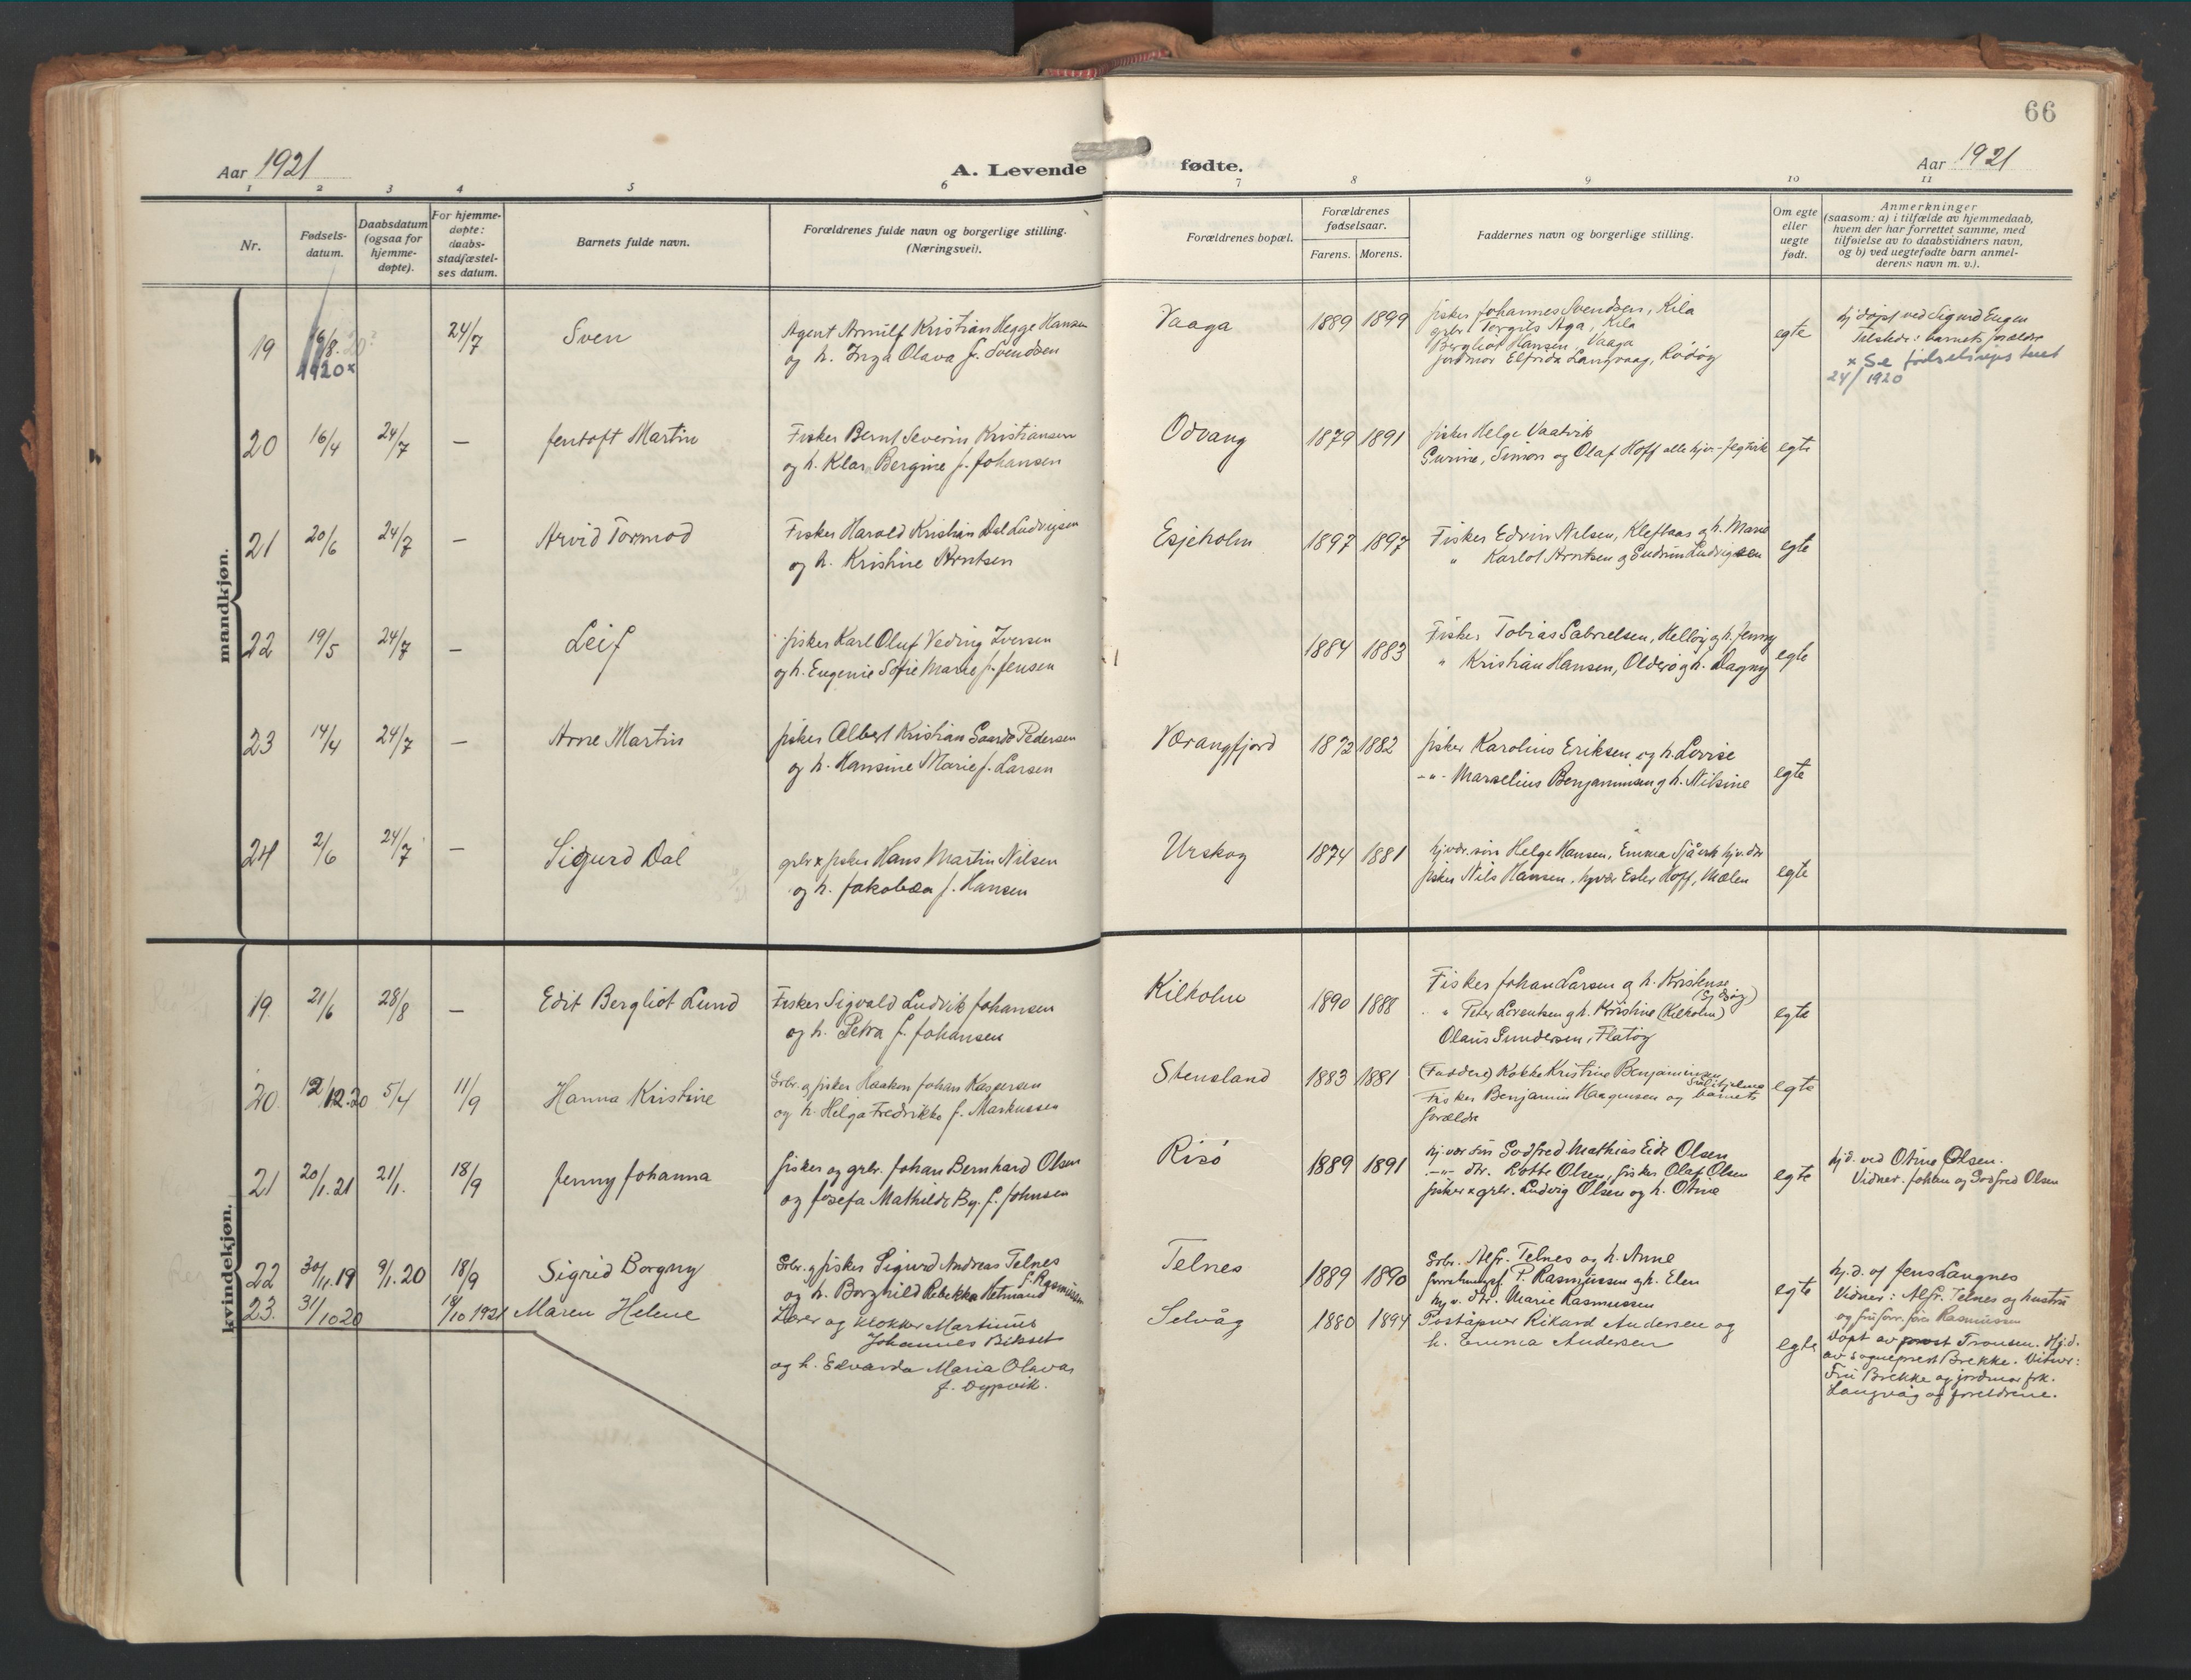 66
Aar 1921
A. Levende fødte.
Aar 1921
1 2 3 4 5 6 7 8 9 10 11
Nr.
Fødsels-
datum.
Daabsdatum
(ogsaa for
hjemme-
døpte).
For hjemme-
døpte:
daabs-
stadfæstel-
ses datum.
Barnets fulde navn.
Forældrenes fulde navn og borgerlige stilling.
(Næringsvei).
Forældrenes bopæl.
Forældrenes
fødselsaar.
Farens. Morens.
Faddernes navn og borgerlige stilling.
Om egte
eller
uegte
født.
Anmerkninger
(saasom: a) i tilfælde av hjemmedaab,
hvem der har forrettet samme, med
tilføielse av to daabsvidners navn,
og b) ved uegtefødte barn anmel-
derens navn m. v.).
mandkjøn.
19 16/8. 1920x 24/7 Sven
Agent Arnulf Kristian Hegge Hansen
og h. Inga Olava f. Svendsen
Vaaga 1889 1899
fisker Johannes Svendsen, Kila
grbr. Torgils Aga, Kila
Bergliot Hansen, Vaaga
jordmor Elfrida Langvaag, Rødøy
egte
hj.døpt ved Sigurd Eugen
Tilstede: barnets forældre
x Se fødselsregisteret
24/1920
20 16/4 24/7 — Jentoft Martin
Fisker Bernt Severin Kristiansen
og h. Klara Bergine f. Johansen
Odvang 1879 1891
fisker Helge Vaatvik
Surine, Simon og Olaf Hoff alle hjv.
egte
21 20/6 24/7 — Arvid Tormod
Fisker Harald Kristian Dal Ludvigsen
og h. Kristine Arntsen
Esjeholm 1897 1897
Fisker Edvin Nilsen, Kleftaas og h. Marie
" Karlot Arntsen og Gudrun Ludvigsen
egte
22 19/5 24/7 — Leif
fisker Karl Oluf Veding Iversen
og h. Eugenie Sofie Marie f. Jensen
1884 1883
Fisker Tobias Gabrielsen, Helløy og h. Jenny
" Kristian Hansen, Olderø og h. Dagny
egte
23 14/4 24/7 — Arne Martin
fisker Albert Kristian Pedersen
og h. Hansine Marie f. Larsen
Værangfjord 1872 1882
fisker Karolius Eriksen og h. Lovise
-"- Marselius Benjaminsen og h. Nilsine
egte
24 2/6 24/7 — Sigurd Dal
grbr x fisker Hans Martin Nilsen
og h. Jakobæa f. Hansen
Urskog 1874 1881
hjvær. søn Helge Hansen, Emma hjv. dtr
fisker Nils Hansen, hjvær Ester Hoff, Mælen
egte
kvindekjøn.
19. 21/6 28/8 — Edit Bergliot Lund
Fisker Sigvald Ludvik Johansen
og h. Petra f. Johansen
Kilholm 1890 1888
Fisker Johan Larsen og h. Kristense
" Peter Lorentsen og h. Kristine (Kilholm)
Olaus Gundersen, Flatøy
egte
20. 12/12.20 5/4 11/9 Hanna Kristine
Grbr. og fisker Haakon Johan Kaspersen
og h. Helga Fredrikke f. Markussen
Stensland 1883 1881
(Faddere) Kokke Kristine Benjaminsen
Fisker Benjamin Haagensen og barnets
forældre
egte
21 20/1.21 21/1. 18/9 Jenny Johanna
fisker og grbr. Johan Bernhard Olsen
og Josefa Mathilde By. f. Johnsen
Risö 1889 1891
hj.vær søn Godfred Mathias Eide Olsen
-"- dtr. Lotte Olsen, fisker Olaf Olsen
fisker x grbr. Ludvig Olsen og h. Otine
egte
hj.d. ved Otine Olsen.
Vidner. Johan og Godfred Olsen
22 30/11.19 9/1.20 18/9 Sigrid Borgny
Grbr. og fisker Sigurd Andreas Telnes
og h. Borghild Rebekka Hetmand f. Rasmussen
Telnes 1889 1890
Grbr. Alfr. Telnes og h. Anne
P. Rasmussen og h. Elen
hj.v. dtr. Marie Rasmussen
egte
hj.d. af Jens Langnes
Vidner: Alfr. Telnes og hustru
og Rasmussen
23. 31/10 20 18/10 1921 Maren Helene
Lærer og klokker Martinus
Johannes Bikset
og h. Edvarda Maria Olava
f. Dypvik.
Selvåg 1880 1894
Poståpner Rikard Andersen og
h. Emma Andersen
egte
Døpt av prost Tronsen. Hj.d.
av sogneprest Brekke. Vitner:
Fru Brekke og jordmor frk.
Langvåg og foreldrene.